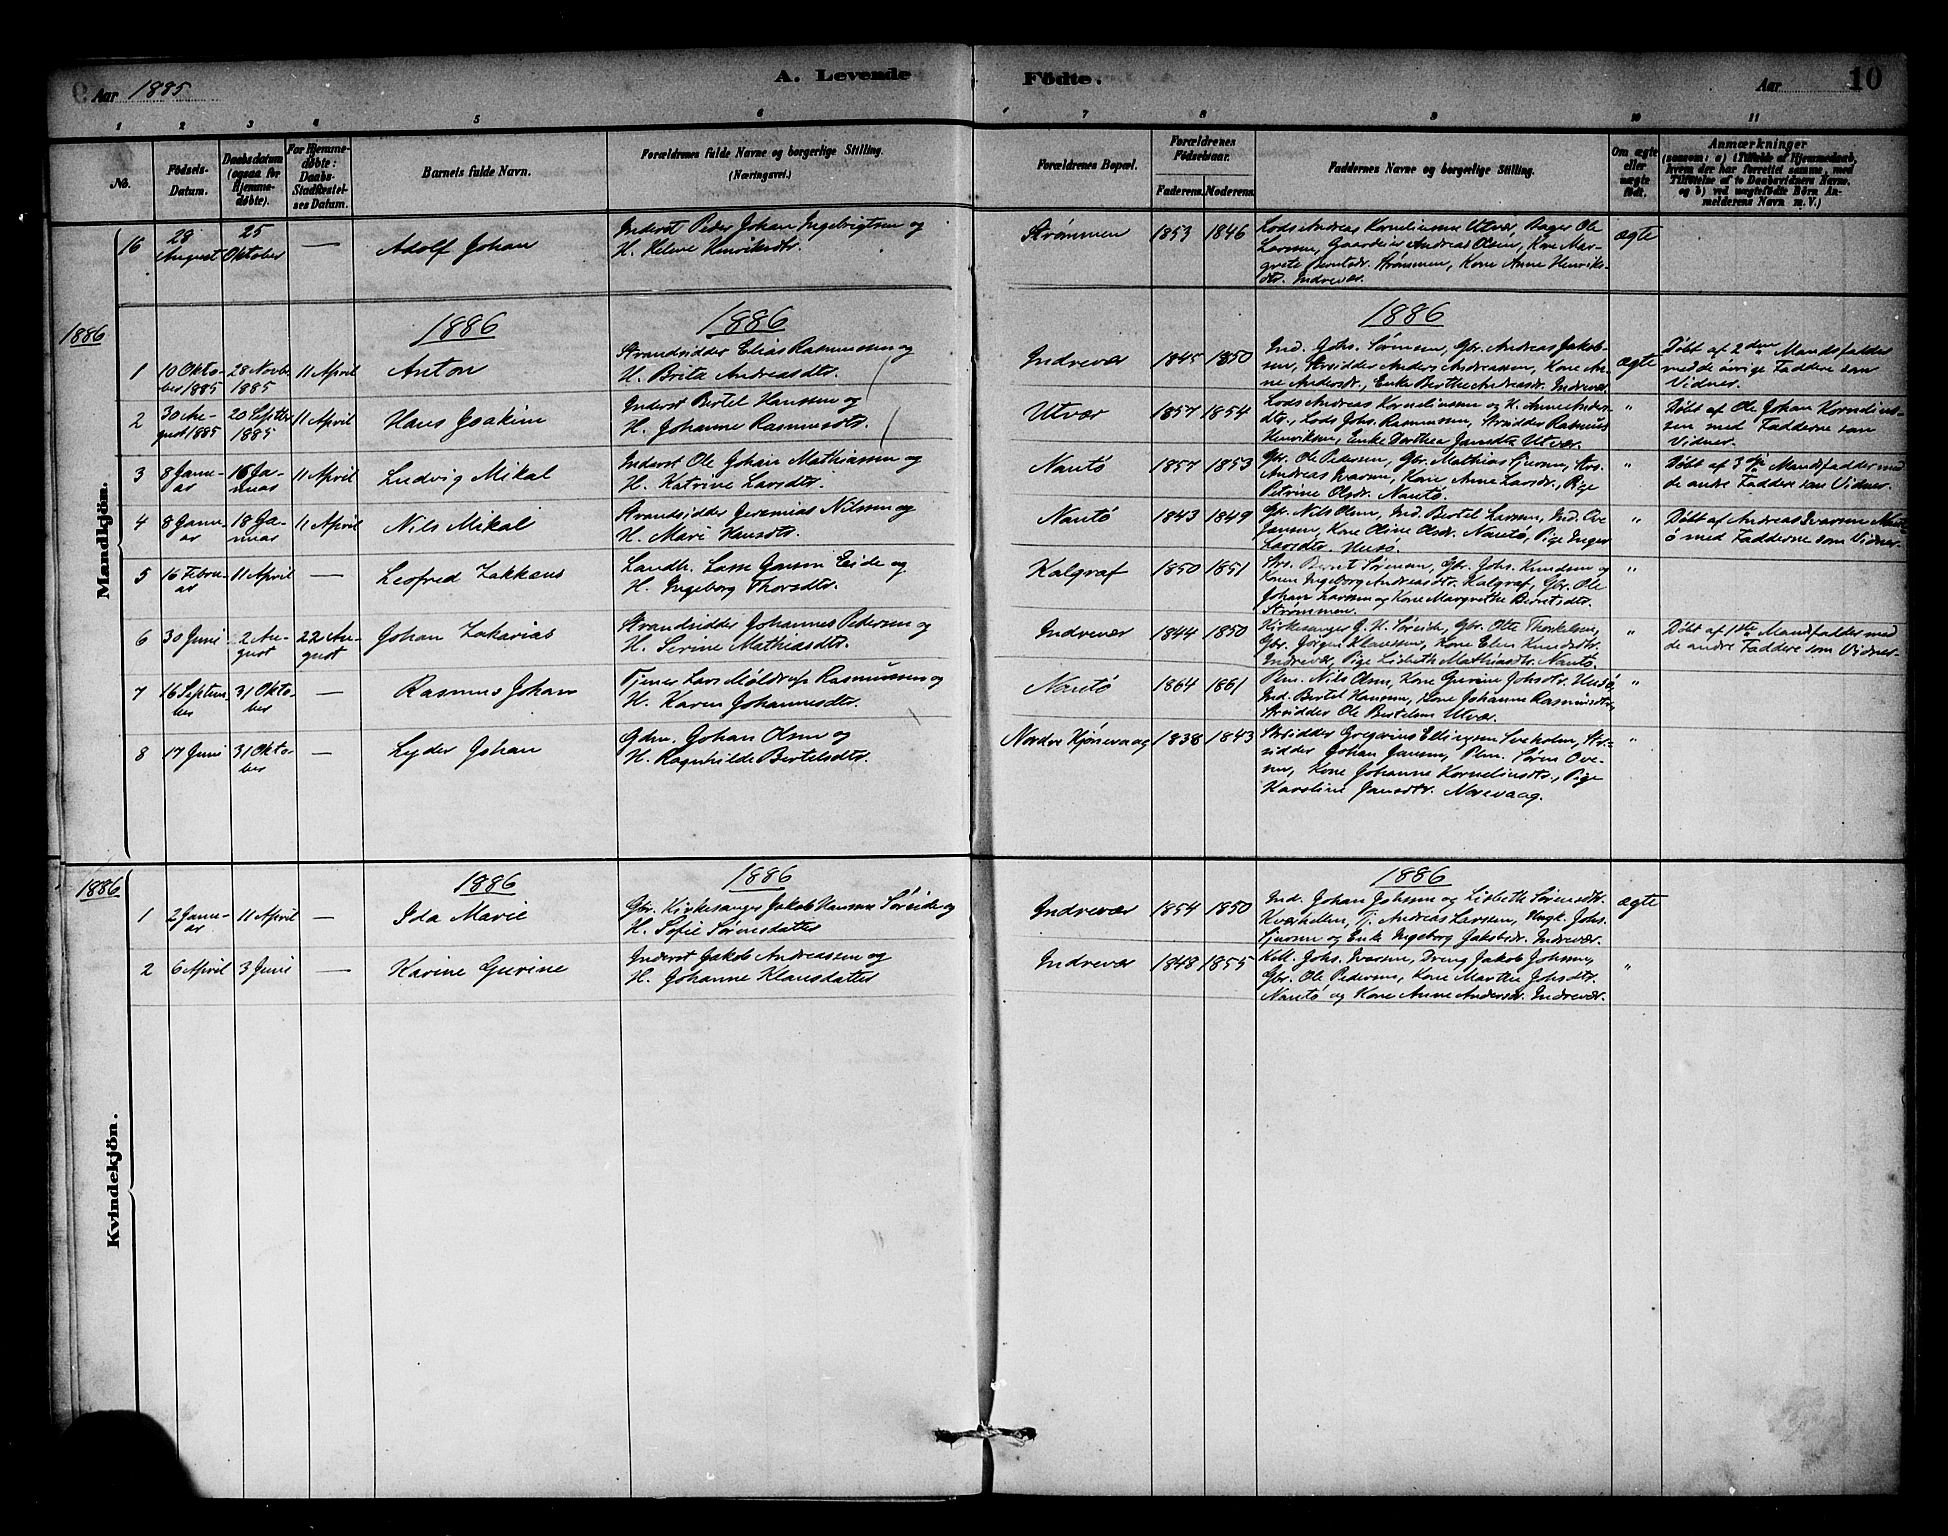 9 Aar 1885
A. Levende Födte.
Aar 10
1 2 3 4 5 6 7 8 9 10 11
No.
Födsels-
Datum.
Daabsdatum
(ogsaa for
Hjemme-
döbte).
For Hjemme-
døbte:
Daabs-
Stadfæstel-
ses Datum.
Barnets fulde Navn.
Forældrenes fulde Navne og borgerlige Stilling.
(Næringsvei.)
Forældrenes Bopæl.
Forældrenes
Födselsaar.
Faderens. Moderens.
Faddernes Navne og borgerlige Stilling.
Om ægte
eller
uægte
födt.
Anmærkninger
(saasom: a) i Tilfælde af Hjemmedaab,
hvem der har forrettet samme, med
Tilföielse af to Daabsvidners Navne,
og b) ved uægtefödte Börn An-
melderens Navn m. V.)
Mandkjön.
16
28
August
25
Oktober
—
Adolf Johan
Inderst Peder Johan Ingebrigtsen og
H. Helene Henriksdtr.
Strømmen
1853 1846
Lods Andreas Korneliussen Utvær, Bager Ole
Larsen, Gaardeier Andreas Olsen, Kone Mar-
grete Berntsdr. Strømmen, Kone Anne Henriks-
dtr. Indrevær.
ægte
1886
1886
1886
1886
1
10 Okto-
ber 1885
28 Novb.
1885
11 April
Anton
Strandsidder Elias Rasmussen og
H. Brita Andreasdtr.
Indrevær
1845 1850
Ind. Johs. Sørensen, Gbr. Andreas Jakob-
sen, Strsidder Anders Andreassen, Kone An-
ne Andersdr., Enke Berthe Andreasdr. Indrevær
ægte
Døbt af 2den Mandsfadder
med de øvrige Faddere som
Vidner.
2
30 Au-
gust 1885
20 Septbr
1885
11 April
Hans Joakim
Inderst Bertel Hanssen og
H. Johanne Rasmusdtr.
Utvær
1857 1854
Lods Andreas Korneliussen og H. Anne Anders-
dtr., Lods Johs. Rasmussen, Strsidder Rasmus
Henriksen, Enke Dorthea Jansdtr Utvær.
"
Døbt af Ole Johan Kornelius-
sen med Fadderne som
Vidner.
3
8 Janu-
ar
16 Ja-
nuar
11 April
Ludvig Mikal
Inderst Ole Johan Mathiassen og
H. Katrine Larsdtr.
Nautö
1857 1853
Gbr. Ole Pedersen, Gbr. Mathias Sjursen, Strs.
Andreas Ivarsen, Kone Anne Larsdr., Pige
Petrine Olsdr. Nautö.
"
Døbt af 3die Mandsfadder med
de andre Faddere som Vidner.
4
8 Janu-
ar
18 Ja-
nuar
11 April
Nils Mikal
Strandsidder Jeremias Nilssen og
H. Mari Hansdtr.
Nautö
1843 1849
Gbr. Nils Olsen, Ind. Bertel Larsen, Ind. Ove
Jansen, Kone Oline Olsdr. Nautö, Pige Inger
Larsdtr. Husö.
"
Døbt af Andreas Ivarsen Naut-
ö med Fadderne som Vidner.
5
16 Febru-
ar
11 April
—
Leofred Zakkæus
Landh. Lasse Jansen Eide og
H. Ingeborg Thorsdtr.
Kalgraf
1850 1851
Strs. Bernt Sørensen, Gbr. Johs. Knudsen og
Konen Ingeborg Andreasdtr. Kalgraf, Gbr. Ole
Johan Larsen og Kone Margrethe Berntsdtr.
Strømmen.
"
6
30 Juni
2 Au-
gust
22 Au-
gust
Johan Zakarias
Strandsidder Johannes Pedersen og
H. Serine Mathiasdtr.
Indrevær
1844 1850
Kirkesanger J. H. Søreide, Gbr. Olte Thorkelsen,
Gbr. Jörgen Klaussen, Kone Elen Knudsdtr.
Indrevær, Pige Lisbeth Mathiasdtr. Nautö.
"
Døbt af 1ste Mandsfadder med
de andre Faddere som Vidner.
7
16 Septem-
ber
31 Okto-
ber
—
Rasmus Johan
Tjener Lars Møldrup Rasmussen og
H. Karen Johannesdtr.
Nautö
1864 1861
Plm. Nils Olsen, Kone Gurine Johsdtr. Husö,
Ind. Bertel Hanssen, Kone Johanne Rasmusdtr.,
Strsidder Ole Bertelsen Utvær.
"
8
17 Juni
31 Okto-
ber
—
Lyder Johan
Gdm. Johan Olsen og
H. Ragnhilde Bertelsdtr.
Nordre Hjønevaag
1838 1843
Strsidder Gregorius Ellingsen Sveholm, Str-
sidder Johan Jansen, Plm. Søren Ove-
sen, Kone Johanne Korneliusdtr., Pige
Karoline Jansdtr. Norevaag.
"
1886
1886
1886
1886
Kvindekjön.
1
2 Janu-
ar
11 April
—
Ida Marie
Gbr. Kirkesanger Jakob Hanssen Søreide og
H. Sofie Sørensdatter
Indrevær
1854 1850
Ind. Johan Johnsen og Lisbeth Sørensdtr.
Kværhellen, Tj. Andreas Larsen, Ungk. Johs.
Sjursen og Enke Ingeborg Jakobsdr. Indrevær.
ægte
2
6 April
3 Juni
—
Karine Gurine
Inderst Jakob Andreassen og
H. Johanne Klausdatter
Indrevær
1848 1855
Johs. Ivarsen, Dreng Jakob Johnsen,
Gbr. Ole Pedersen, Kone Marthe Johsdtr.
Nautö og Kone Anne Andersdr. Indrevær.
"